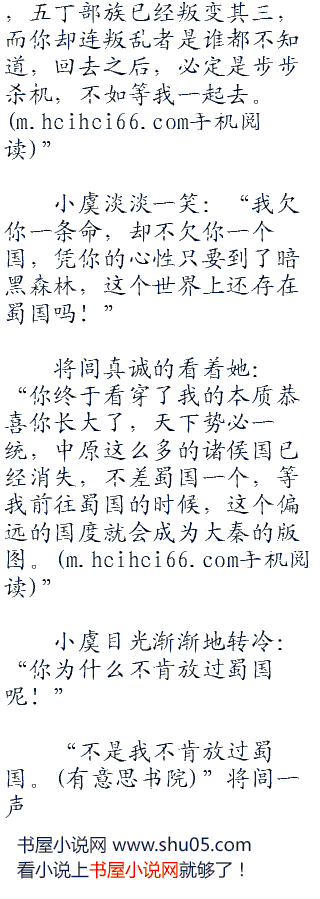 ，五丁部族已经叛变其三，
而你却连叛乱者是谁都不知
道，回去之后，必定是步步
杀机，不如等我一起去。
(m.hcihci66.com手机阅
读)”
小虞淡淡一笑：“我欠
你一条命，却不欠你一个
国，凭你的心性只要到了暗
黑森林，这个世界上还存在
蜀国吗！”
将闾真诚的看着她：
“你终于看穿了我的本质恭
喜你长大了，天下势必一
统，中原这么多的诸侯国已
经消失，不差蜀国一个，等
我前往蜀国的时候，这个偏
远的国度就会成为大秦的版
图。(m.hcihci66.com手机阅
读)”
小虞目光渐渐地转冷：
“你为什么不肯放过蜀国
呢！”
“不是我不肯放过蜀
国。(有意思书院)”将闾一
声
书屋小说网 www.shu05.com
看小说上书屋小说网就够了！